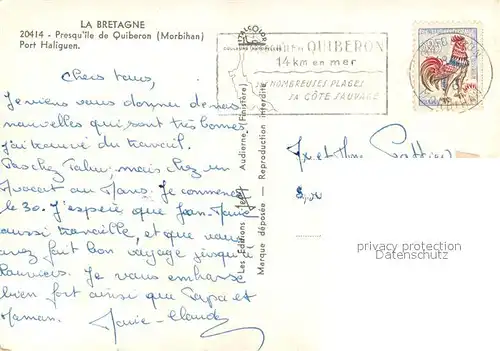 LA BRETAGNE
20414 - Presqu'île de Quiberon (Morbihan)
Port Haliguen.
Chers tous,
Je viens vous donner de mes
nouvelles qui sont très bonnes
j'ai trouvé du travail.
Pas chez mais chez un
Avocat au Mans. Je commence
le 30. J'espère que Jean-Marie
aussi travaille, et que vous
avez fait bon voyage jusqu'à
Je vous embrasse
bien fort ainsi que Papa et
Maman. Marie-Claude
Les Éditions Audierne (Finistère)
Marque déposée — Reproduction interdite
QUIBERON
14 km en mer
NOMBREUSES PLAGES
SA CÔTE SAUVAGE
privacy protection
ansichtskartenversand.com